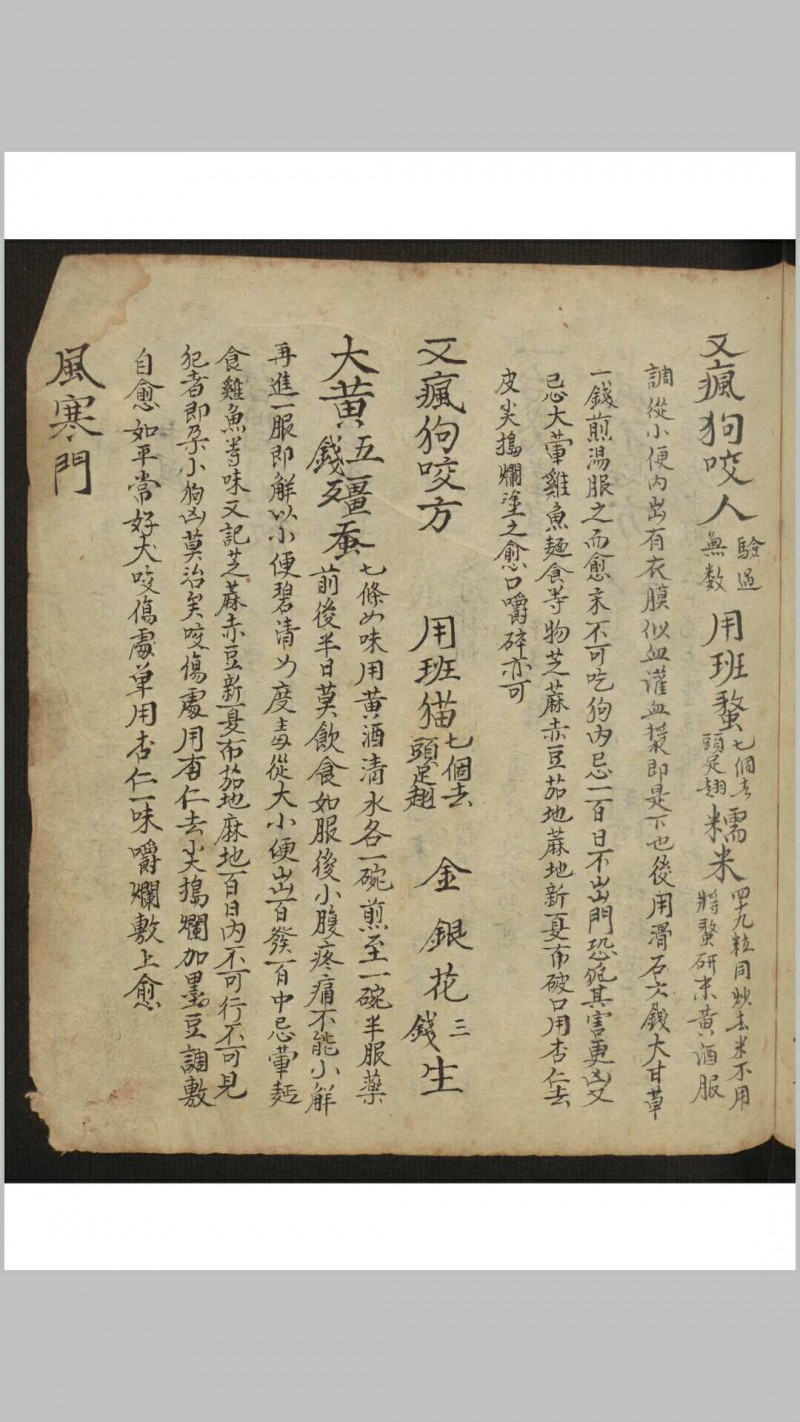 又瘋狗咬人驗過無数用班蝥七個去頭足翅糯米四十九粒同炒去米不用將蝥研末黄酒服
調從小便内出有衣膜似血灌血裹即是下也後用滑石六錢大甘草
一錢煎湯服之而愈末不可吃狗肉忌一百日不出門恐犯其害更凶又
忌大葷雞魚麺食等物芝蔴赤豆茄地蔴地新夏布破口用杏仁去
皮尖搗爛塗之愈口嚼碎亦可
又瘋狗咬方 用班猫七個去頭足翅 金銀花三錢 生
大黄五錢 殭蚕七條 味用黄酒清水各一碗煎至一碗半服藥
前後半日莫飲食如服後小腹疼痛不能小解
再進一服即解以小便碧清 度毒從大小便出百發百中忌葷麺
食雞魚等味又記芝蔴赤豆新夏布茄地麻地百日内不可行不可見
犯者即孕小狗凶莫治矣咬傷處用杏仁去尖搗爛加黑豆調敷
自愈如平常好犬咬傷處单用杏仁一味嚼爛敷上愈
風寒門